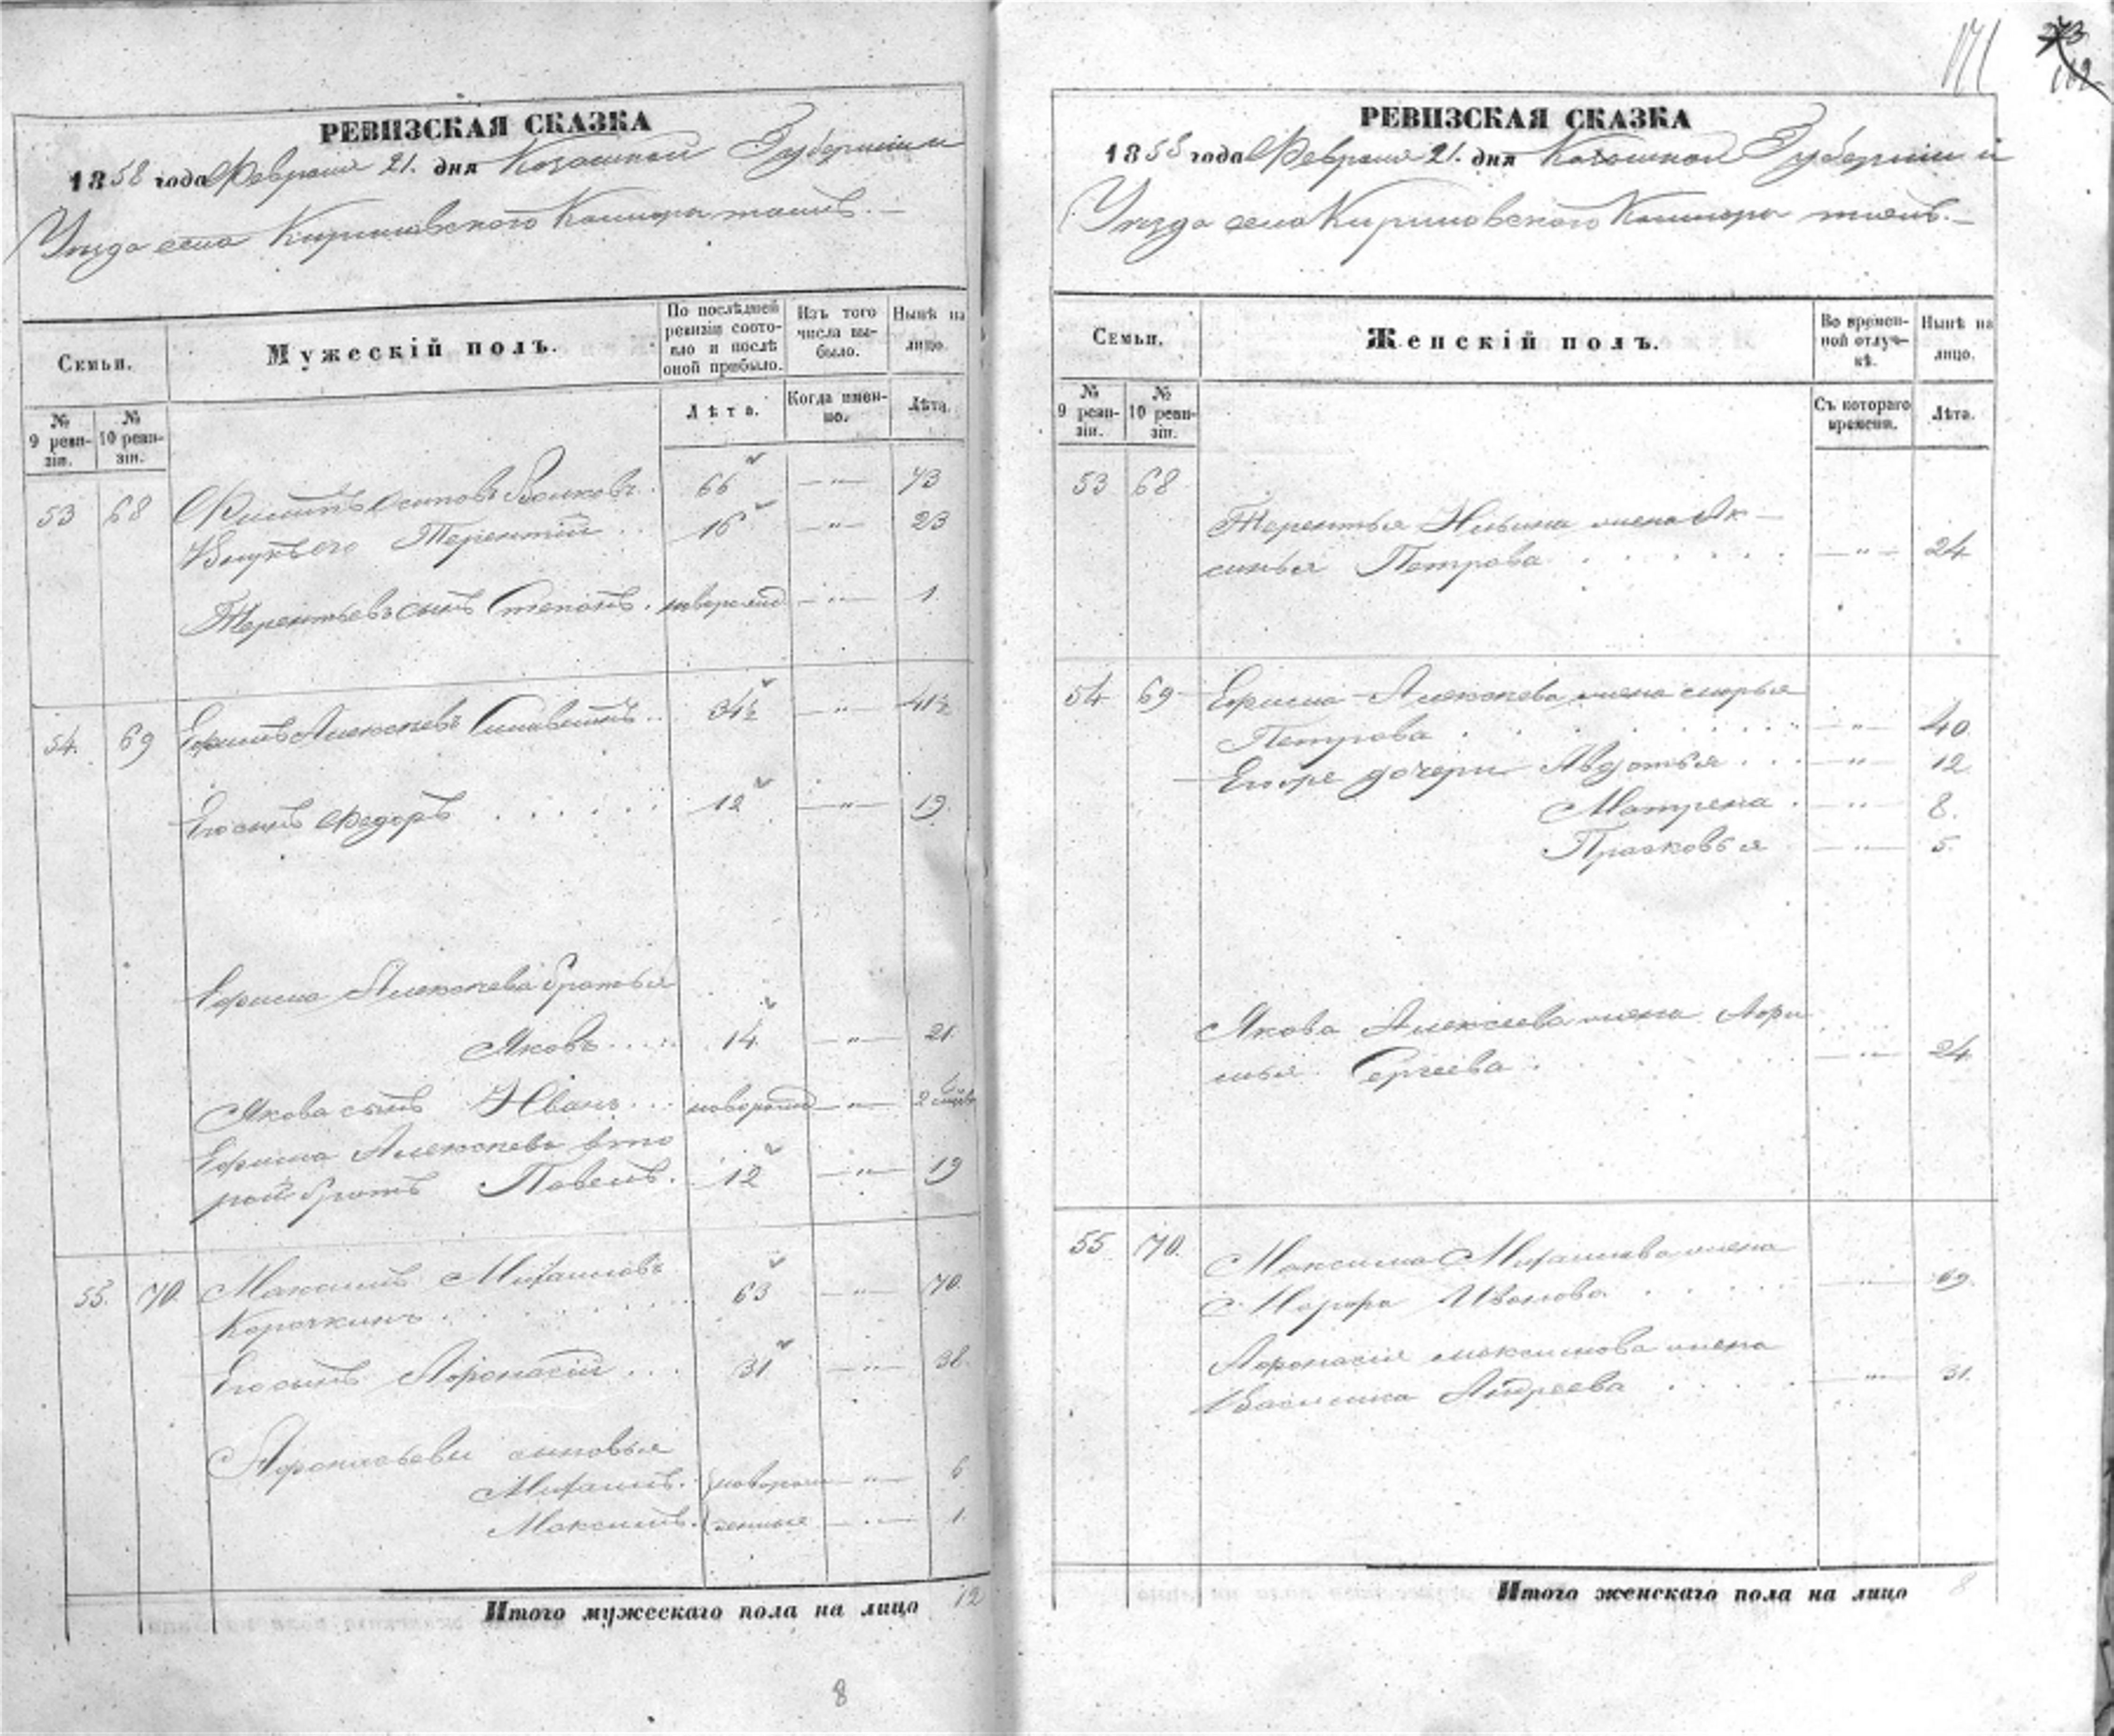 РЕВИЗСКАЯ СКАЗКА
1858 года Февраля 21. дня Казанской Губерніи и
Уезда села Кириловского Кошпоры тожъ.
Семьи.
Мужескій полъ.
По послѣдней ревизіи состояло и послѣ оной прибыло.
Изъ того числа выбыло.
Нынѣ на лицо.
№ 9 ревизіи.
№ 10 ревизіи.
Лѣта.
Когда именно.
Лѣта.
53 68 Филипъ Осиповъ Волковъ. 66 —"— 73
Внукъ его Терентій . . 16 —"— 23
Терентьевъ сынъ Степанъ. новорожд —"— 1.
54. 69 Ефимъ Алексеевъ . . 34½ —"— 41½
Его сынъ Федоръ . . . . . 12 —"— 19.
Ефима Алексеева братья
Яковъ . . . . 14 —"— 21.
Якова сынъ Иванъ . . . новорожд —"— 2
Ефима Алексеева вто
рой братъ Павелъ. 12 —"— 19
55. 70. Максимъ Михаиловъ
Корочкинъ . . . . . 63 —"— 70.
Его сынъ Афонасій . . . 31 —"— 38.
Афонасьевы сыновья
Михаилъ. новорож —"— 6
Максимъ. денные —"— 1.
Итого мужескаго пола на лицо 12
8
171
112
РЕВИЗСКАЯ СКАЗКА
1858 года Февраля 21. дня Казанской Губерніи и
Уезда села Кириловского Кошпоры тожъ.—
Семьи.
Женскій полъ.
Во временной отлучкѣ.
Нынѣ на лицо.
№ 9 ревизіи.
№ 10 ревизіи.
Съ котораго времени.
Лѣта.
53 68
Терентья Ильина жена Ак—
синья Петрова . . . . . . —"— 24
54 69 Ефима Алексеева жена Марья
Петрова . . . . . . . . —"— 40
Егоже дочери Авдотья . . . —"— 12
Матрена . —"— 8.
Прасковья —"— 5.
Якова Алексеева жена
Сергеева . —"— 24
55 70. Максима Михаилова жена
Марфа Иванова . . . . —"— 69.
Афонасія Максимова жена
Василиса Андреева . . . . —"— 31.
Итого женскаго пола на лицо 8